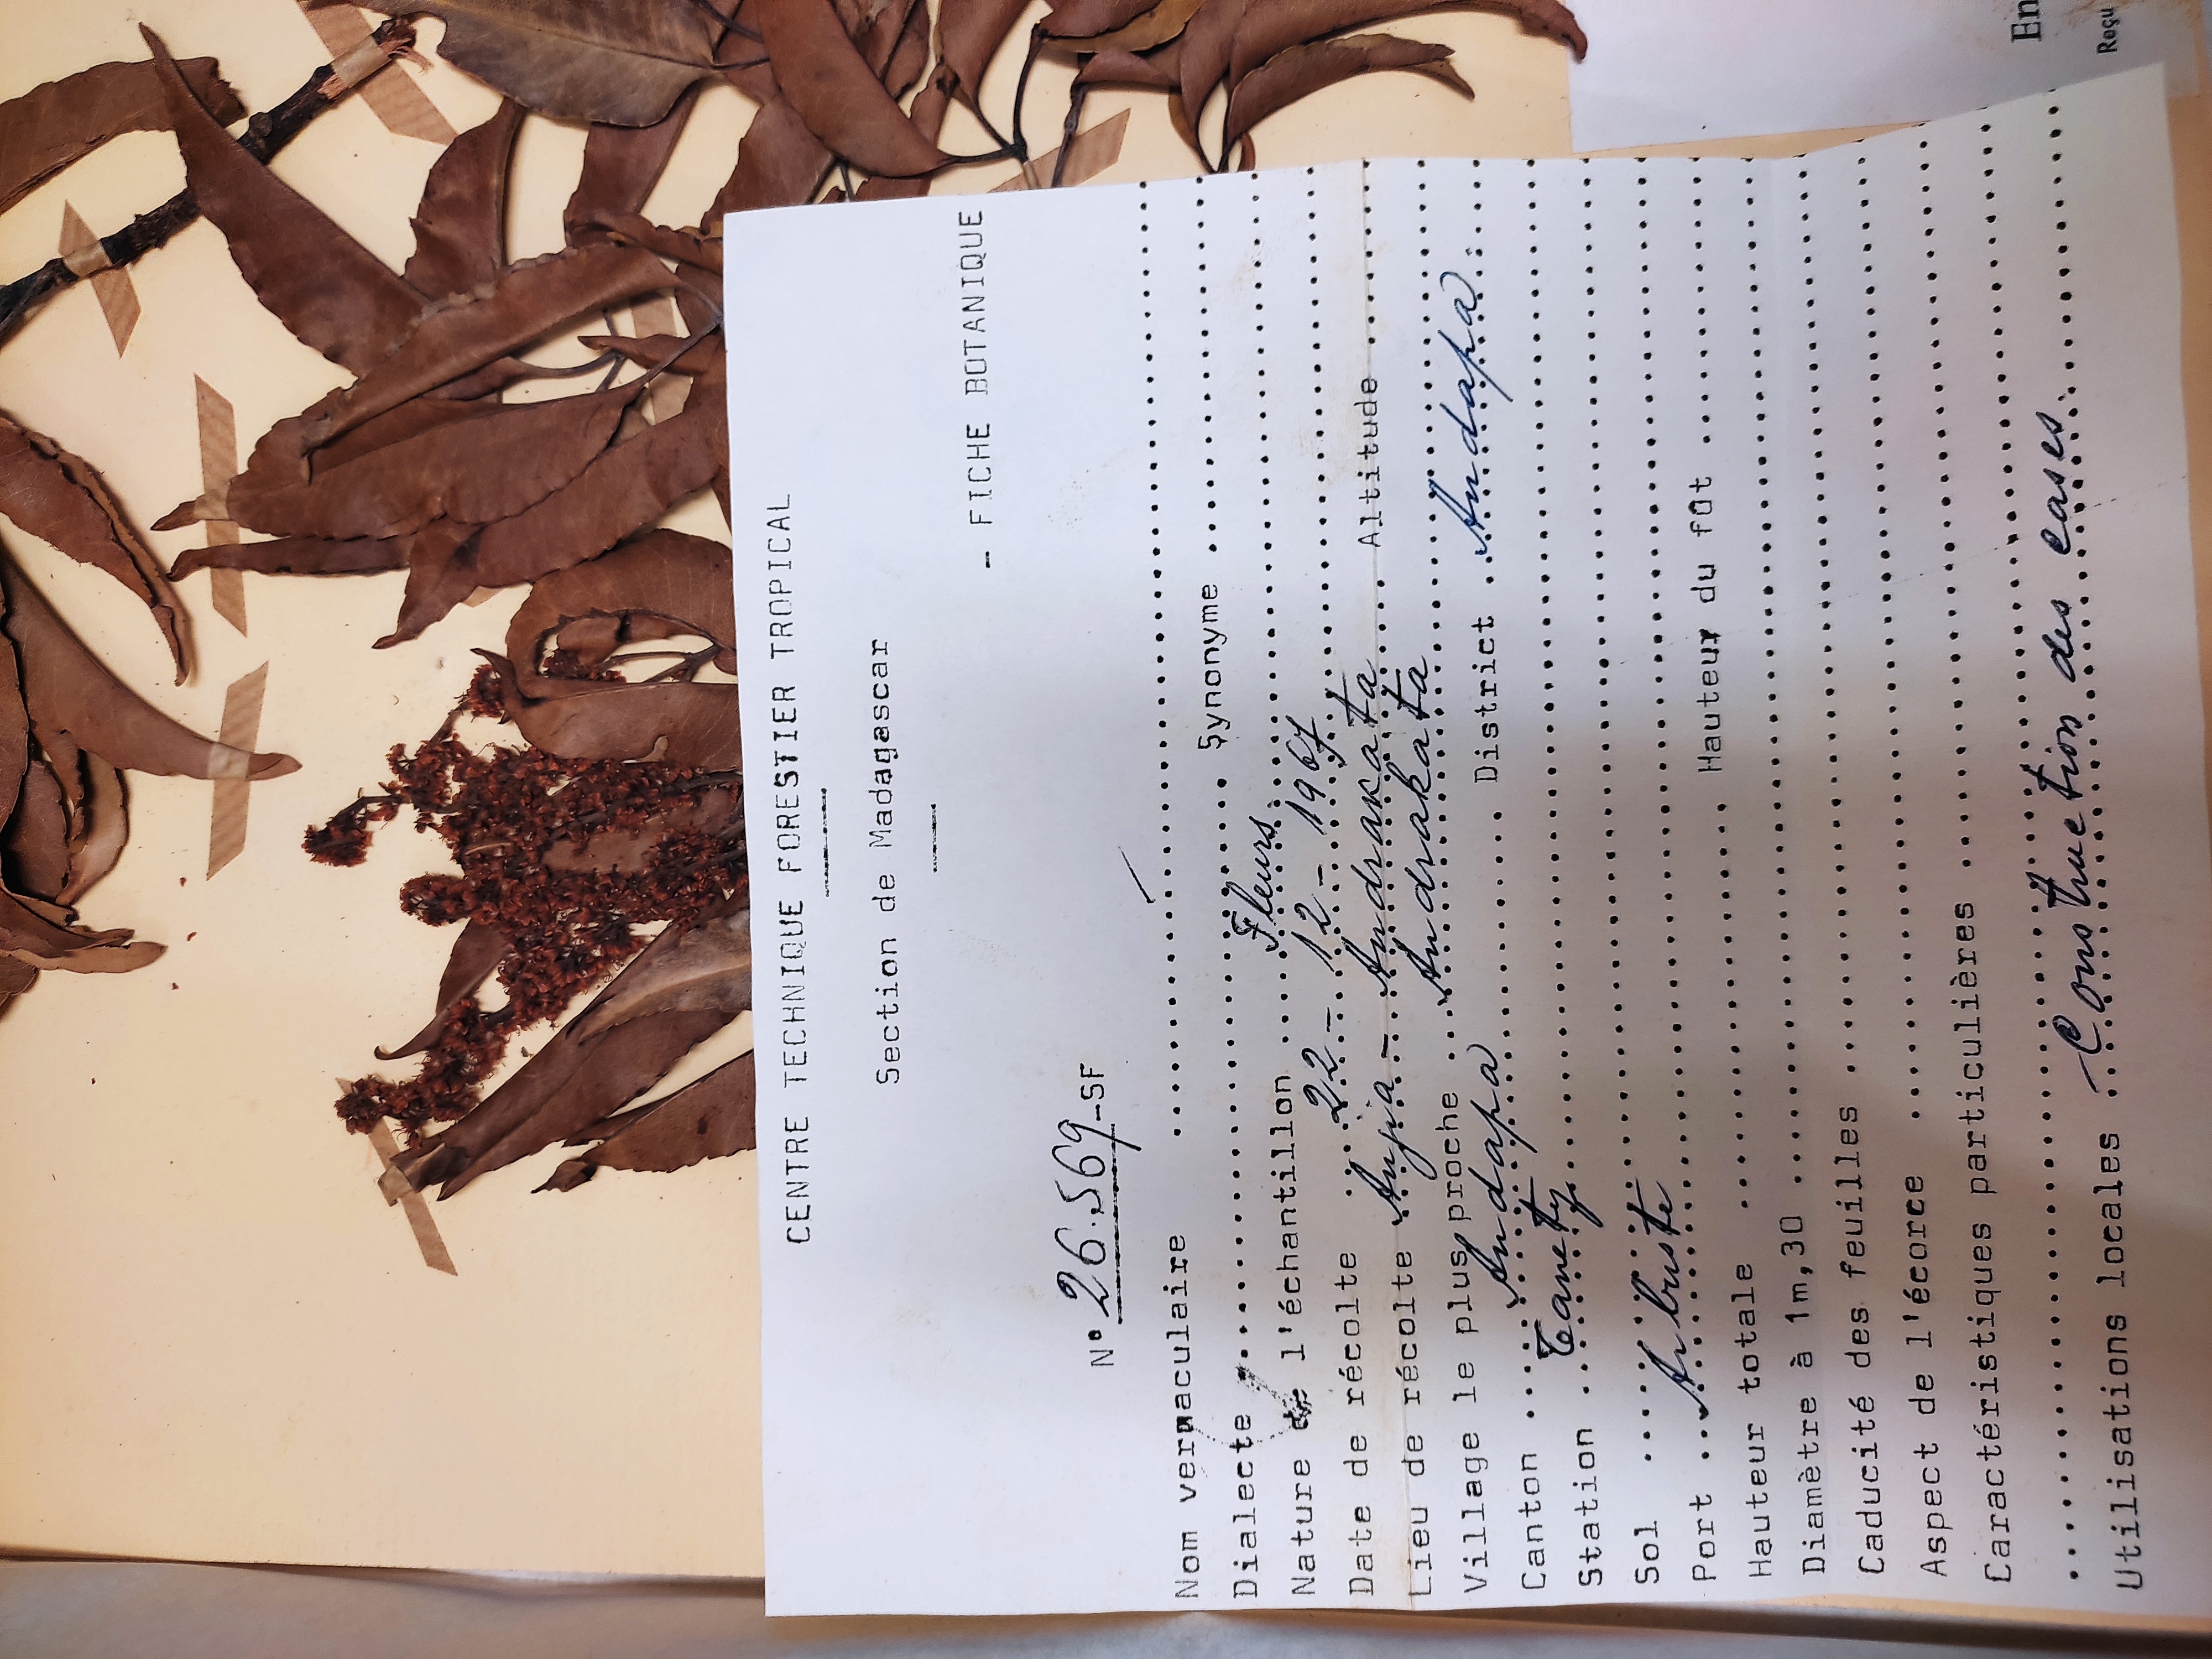 CENTRE TECHNIQUE FORESTIER TROPICAL
Section de Madagascar
- FICHE BOTANIQUE
N° 26.569-SF
Nom vernaculaire
Dialecte Synonyme
Nature de l'échantillon Fleurs
Date de récolte 22 - 12 - 1967 Altitude
Lieu de récolte Anja - Andrakata
Village le plus proche Andrakata
Canton Andapa District Andapa
Station Tanety
Sol
Port Arbuste
Hauteur totale Hauteur du fût
Diamètre à 1m,30
Caducité des feuilles
Aspect de l'écorce
Caractéristiques particulières
Utilisations locales Construction des cases
En
Reçu